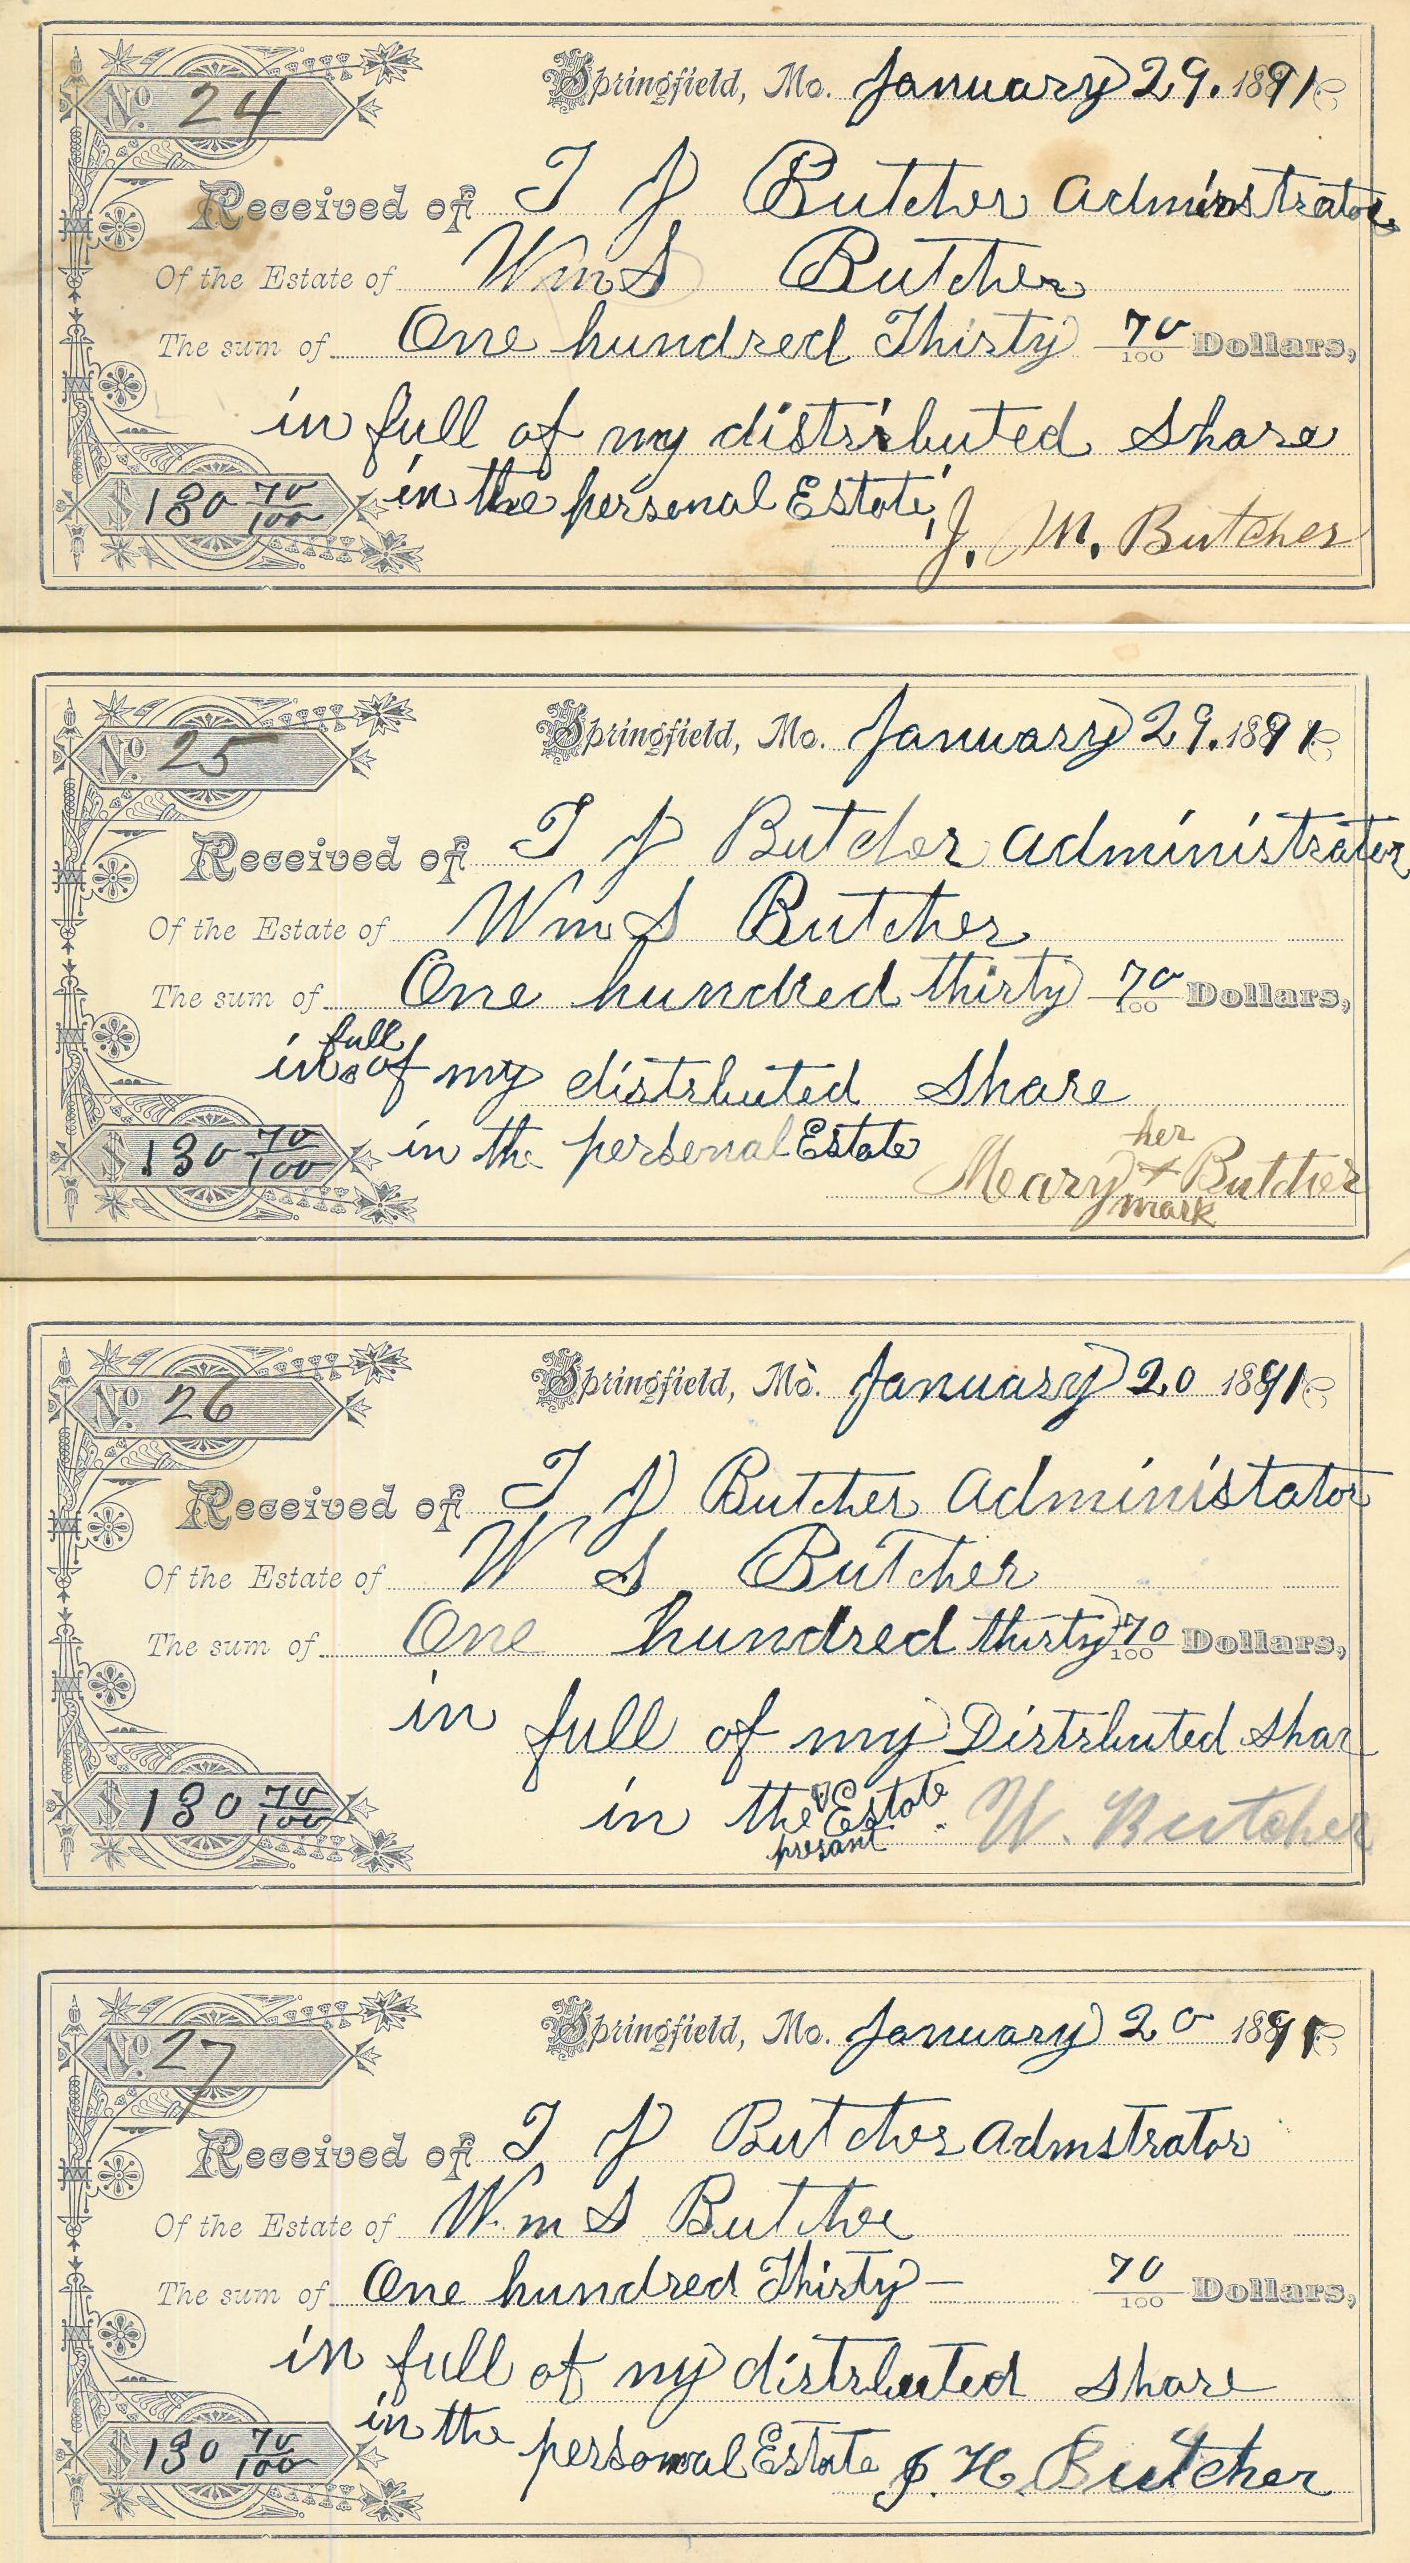 No 24
Springfield, Mo. January 29. 1891
Received of T J Butcher Adminstrator
Of the Estate of Wm S Butcher
The sum of One hundred Thirty 70/100 Dollars,
in full of my distributed share
in the personal Estate,
$ 130 70/100
J. M. Butcher
No 25
Springfield, Mo. January 29. 1891
Received of T J Butcher Administrator
Of the Estate of Wm S Butcher
The sum of One hundred thirty 70/100 Dollars,
in full of my distrbuted share
in the personal Estate
$ 130 70/100
her
Mary x Butcher
mark
No 26
Springfield, Mo. January 20 1891
Received of T J Butcher Administator
Of the Estate of W S Butcher
The sum of One hundred thirty 70/100 Dollars,
in full of my Distrbuted Shar
in the Estate.
$ 130 70/100
W. Butcher
No 27
Springfield, Mo. January 20 1891
Received of T J Butcher Admstrator
Of the Estate of Wm S Butche
The sum of One hundred Thirty — 70/100 Dollars,
in full of my distrbuted share
in the personal Estate
$ 130 70/100
J. H. Butcher